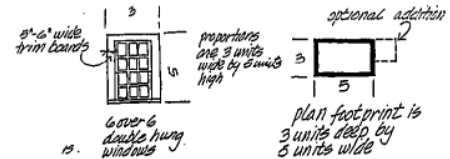 3
5"-6" wide
trim boards
5
proportions
are 3 units
wide by 5 units
high
6 over 6
double hung
windows
13.
optional addition
3
5
plan footprint is
3 units deep by
5 units wide